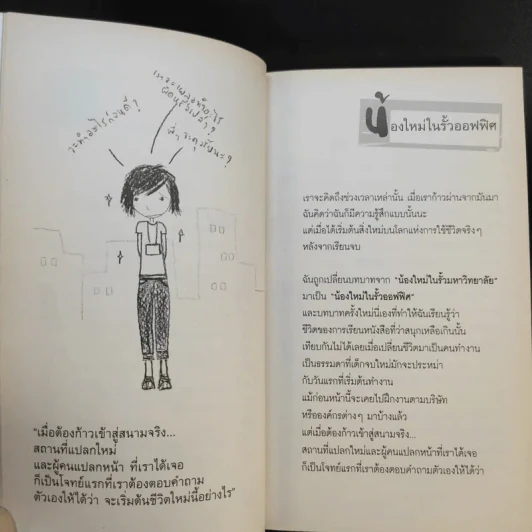 จะทำอะไรก่อนดี?
เราจะเผลอทำอะไร
ผิดแปลกรึเปล่า?
พี่ๆ จะดุมั้ยนะ?
"เมื่อต้องก้าวเข้าสู่สนามจริง...
สถานที่แปลกใหม่
และผู้คนแปลกหน้า ที่เราได้เจอ
ก็เป็นโจทย์แรกที่เราต้องตอบคำถาม
ตัวเองให้ได้ว่า จะเริ่มต้นชีวิตใหม่นี้อย่างไร"
น้องใหม่ในรั้วออฟฟิศ
เราจะคิดถึงช่วงเวลาเหล่านั้น เมื่อเราก้าวผ่านจากมันมา
ฉันคิดว่าฉันก็มีความรู้สึกแบบนั้นนะ
แต่เมื่อได้เริ่มต้นสิ่งใหม่บนโลกแห่งการใช้ชีวิตจริงๆ
หลังจากเรียนจบ
ฉันถูกเปลี่ยนบทบาทจาก "น้องใหม่ในรั้วมหาวิทยาลัย"
มาเป็น "น้องใหม่ในรั้วออฟฟิศ"
และบทบาทครั้งใหม่นี่เองที่ทำให้ฉันเรียนรู้ว่า
ชีวิตของการเรียนหนังสือที่ว่าสนุกเหลือเกินนั้น
เทียบกันไม่ได้เลยเมื่อเปลี่ยนชีวิตมาเป็นคนทำงาน
เป็นธรรมดาที่เด็กจบใหม่มักจะประหม่า
กับวันแรกที่เริ่มต้นทำงาน
แม้ก่อนหน้านี้จะเคยไปฝึกงานตามบริษัท
หรือองค์กรต่างๆ มาบ้างแล้ว
แต่เมื่อต้องก้าวเข้าสู่สนามจริง...
สถานที่แปลกใหม่และผู้คนแปลกหน้าที่เราได้เจอ
ก็เป็นโจทย์แรกที่เราต้องตอบคำถามตัวเองให้ได้ว่า